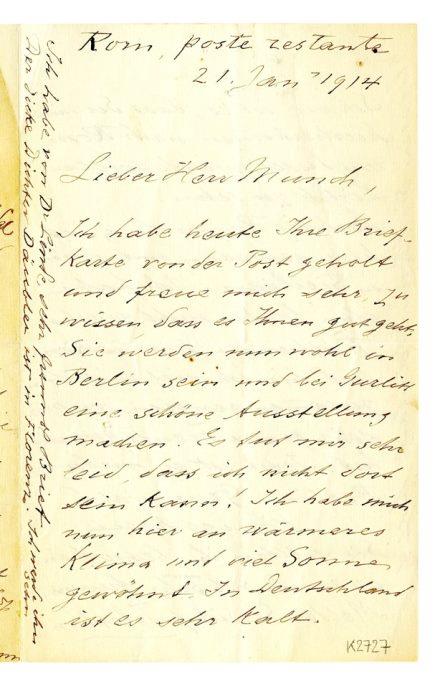 Rom, poste restante
21. Jan 1914
Lieber Herr Munch,
Ich habe heute Ihre Brief-
karte von der Post geholt
und freue mich sehr zu
wissen, dass es Ihnen gut geht.
Sie werden nun wohl in
Berlin sein und bei Gurlitt
eine schöne Ausstellung
machen. Es tut mir sehr
leid, dass ich nicht dort
sein kann! Ich habe mich
nun hier an wärmeres
Klima und viel Sonne
gewöhnt. In Deutschland
ist es sehr kalt.
Ich habe von Dr. Linde sehr Brief
Der dicke Dichter Däubler ist in Florenz. Ich werde ihn
sehen
K2727